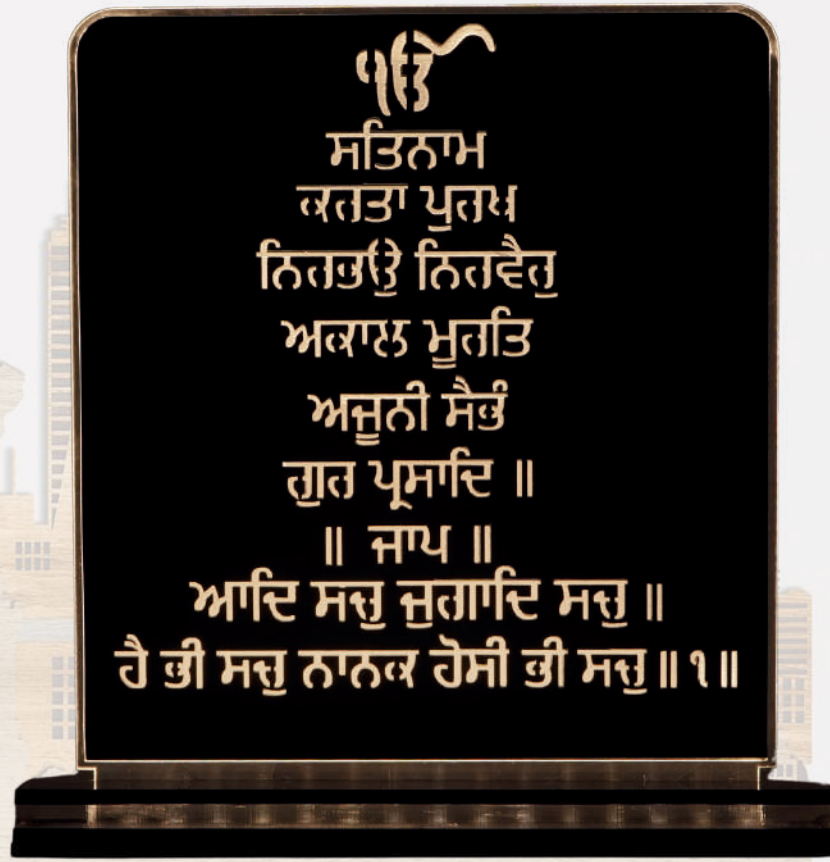 ੴ
ਸਤਿਨਾਮ
ਕਰਤਾ ਪੁਰਖ
ਨਿਰਭਉ ਨਿਰਵੈਰੁ
ਅਕਾਲ ਮੂਰਤਿ
ਅਜੂਨੀ ਸੈਭੰ
ਗੁਰ ਪ੍ਰਸਾਦਿ ॥
॥ ਜਾਪ ॥
ਆਦਿ ਸਚੁ ਜੁਗਾਦਿ ਸਚੁ ॥
ਹੈ ਭੀ ਸਚੁ ਨਾਨਕ ਹੋਸੀ ਭੀ ਸਚੁ ॥ ੧ ॥